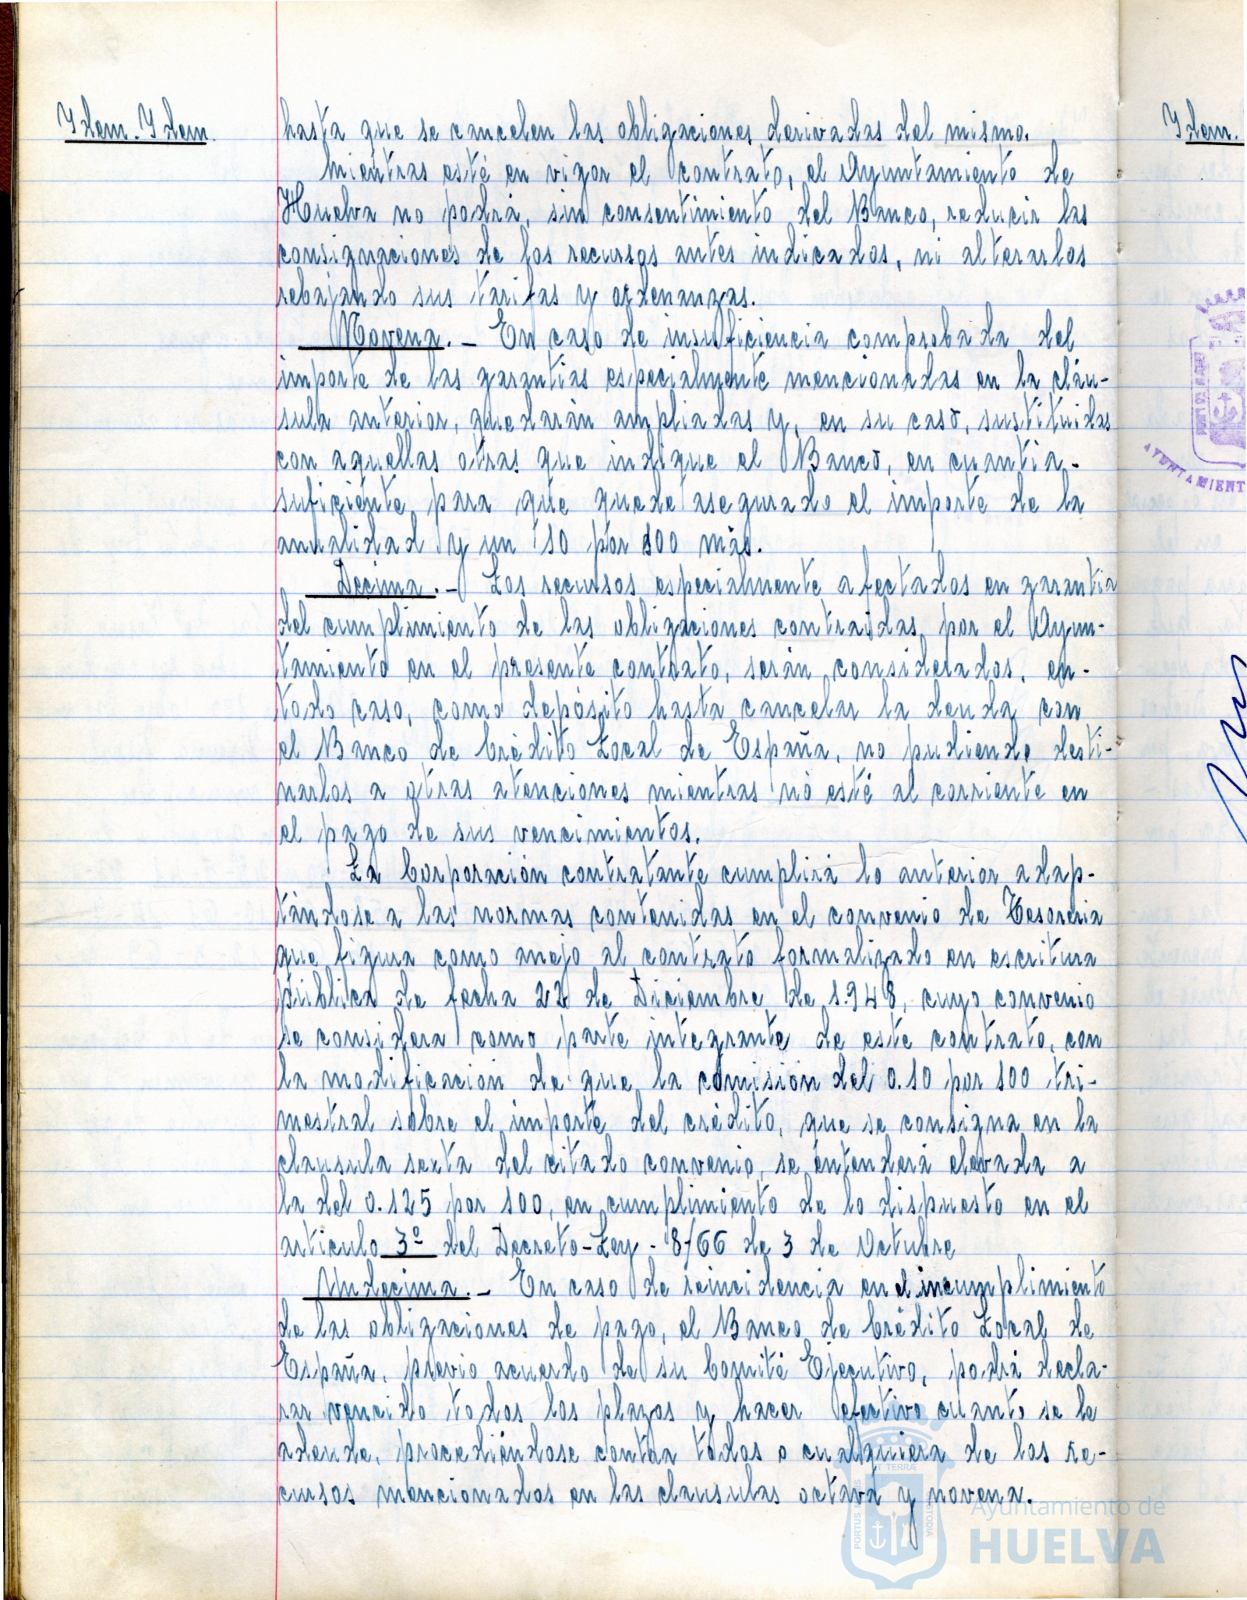 Ydem. Ydem.
hasta que se cancelen las obligaciones derivadas del mismo.
Mientras esté en vigor el contrato, el Ayuntamiento de
Huelva no podrá, sin consentimiento del Banco, reducir las
consignaciones de los recursos antes indicados, ni alterarlos
rebajando sus tarifas y ordenanzas.
Novena.- En caso de insuficiencia comprobada del
importe de las garantías especialmente mencionadas en la cláu-
sula anterior, quedarán ampliadas y, en su caso, sustituidas
con aquellas otras que indique el Banco, en cuantía-
suficiente para que quede asegurado el importe de la
anualidad y un 10 por 100 más.
Décima.- Los recursos especialmente afectados en garantía
del cumplimiento de las obligaciones contraidas por el Ayun-
tamiento en el presente contrato, serán considerados, en-
todo caso, como depósito hasta cancelar la deuda con
el Banco de Crédito Local de España, no pudiendo desti-
narlos a otras atenciones mientras no esté al corriente en
el pago de sus vencimientos.
La Corporación contratante cumplirá lo anterior adap-
tándose a las normas contenidas en el convenio de Tesorería
que figura como anejo al contrato formalizado en escritura
pública de fecha 22 de Diciembre de 1.948, cuyo convenio
se considera como parte integrante de este contrato, con
la modificación de que la comisión del 0.10 por 100 tri-
mestral sobre el importe del crédito, que se consigna en la
clausula sexta del citado convenio, se entenderá elevada a
la del 0.125 por 100, en cumplimiento de lo dispuesto en el
artículo 3º del Decreto-Ley - 8/66 de 3 de Octubre
Undecima.- En caso de reincidencia en el incumplimiento
de las obligaciones de pago, el Banco de Crédito Local de
España, previo acuerdo de su Comité Ejecutivo, podrá decla-
rar vencido todos los plazos y hacer efectivo cuanto se le
adeude, procediéndose contra todos o cualquiera de los re-
cursos mencionados en las clausulas octava y novena.
Ydem.
AYUNTAMIENT
Ayuntamiento de
HUELVA